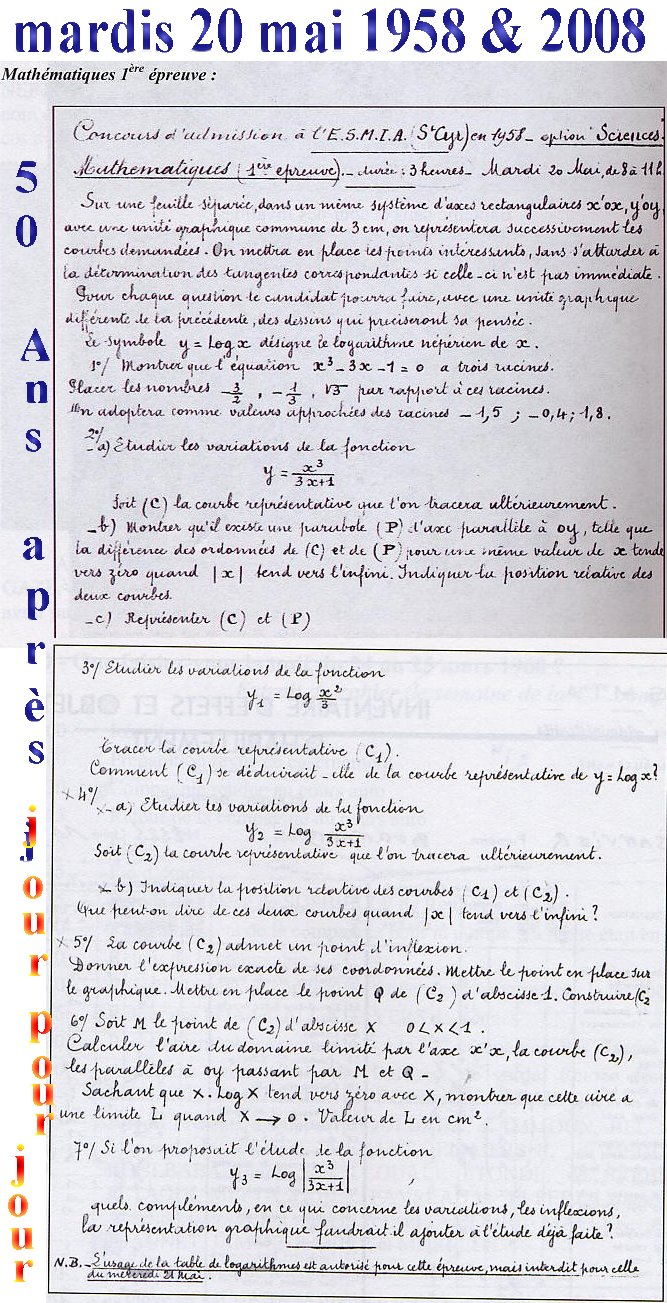 mardis 20 mai 1958 & 2008
Mathématiques 1ère épreuve :
50 Ans après jour pour jour
Concours d'admission à l'E.S.M.I.A. (St Cyr) en 1958 - option Sciences.
Mathématiques (1ère épreuve). - durée : 3 heures - Mardi 20 Mai, de 8 à 11h
Sur une feuille séparée, dans un même système d'axes rectangulaires x'ox, y'oy,
avec une unité graphique commune de 3 cm, on représentera successivement les
courbes demandées. On mettra en place les points intéressants, sans s'attarder à
la détermination des tangentes correspondantes si celle-ci n'est pas immédiate.
Pour chaque question le candidat pourra faire, avec une unité graphique
différente de la précédente, des dessins qui préciseront sa pensée.
Le symbole y = Log x désigne le logarithme népérien de x.
1°/ Montrer que l'équation x³ - 3x - 1 = 0 a trois racines.
Placer les nombres -3/2, -1/3, √3 par rapport à ces racines.
On adoptera comme valeurs approchées des racines -1,5 ; -0,4 ; 1,8.
2°/
- a) Etudier les variations de la fonction
y = x³/(3x+1)
Soit (C) la courbe représentative que l'on tracera ultérieurement.
- b) Montrer qu'il existe une parabole (P) d'axe parallèle à oy, telle que
la différence des ordonnées de (C) et de (P) pour une même valeur de x tende
vers zéro quand |x| tend vers l'infini. Indiquer la position relative des
deux courbes.
- c) Représenter (C) et (P)
3°/ Etudier les variations de la fonction
y₁ = Log x²/3
Tracer la courbe représentative (C₁).
Comment (C₁) se déduirait-elle de la courbe représentative de y = Log x ?
x 4°/
x - a) Etudier les variations de la fonction
y₂ = Log x³/(3x+1)
Soit (C₂) la courbe représentative que l'on tracera ultérieurement.
x b) Indiquer la position relative des courbes (C₁) et (C₂).
Que peut-on dire de ces deux courbes quand |x| tend vers l'infini ?
x 5°/ La courbe (C₂) admet un point d'inflexion.
Donner l'expression exacte de ses coordonnées. Mettre le point en place sur
le graphique. Mettre en place le point Q de (C₂) d'abscisse 1. Construire (C₂
6°/ Soit M le point de (C₂) d'abscisse X 0 < X < 1.
Calculer l'aire du domaine limité par l'axe x'x, la courbe (C₂),
les parallèles à oy passant par M et Q -
Sachant que X. Log X tend vers zéro avec X, montrer que cette aire a
une limite L quand X → 0. Valeur de L en cm².
7°/ Si l'on proposait l'étude de la fonction
y₃ = Log |x³/(3x+1)| ,
quels compléments, en ce qui concerne les variations, les inflexions,
la représentation graphique faudrait-il ajouter à l'étude déjà faite ?
N.B. - L'usage de la table de logarithmes est autorisé pour cette épreuve, mais interdit pour celle
du mercredi 21 Mai.